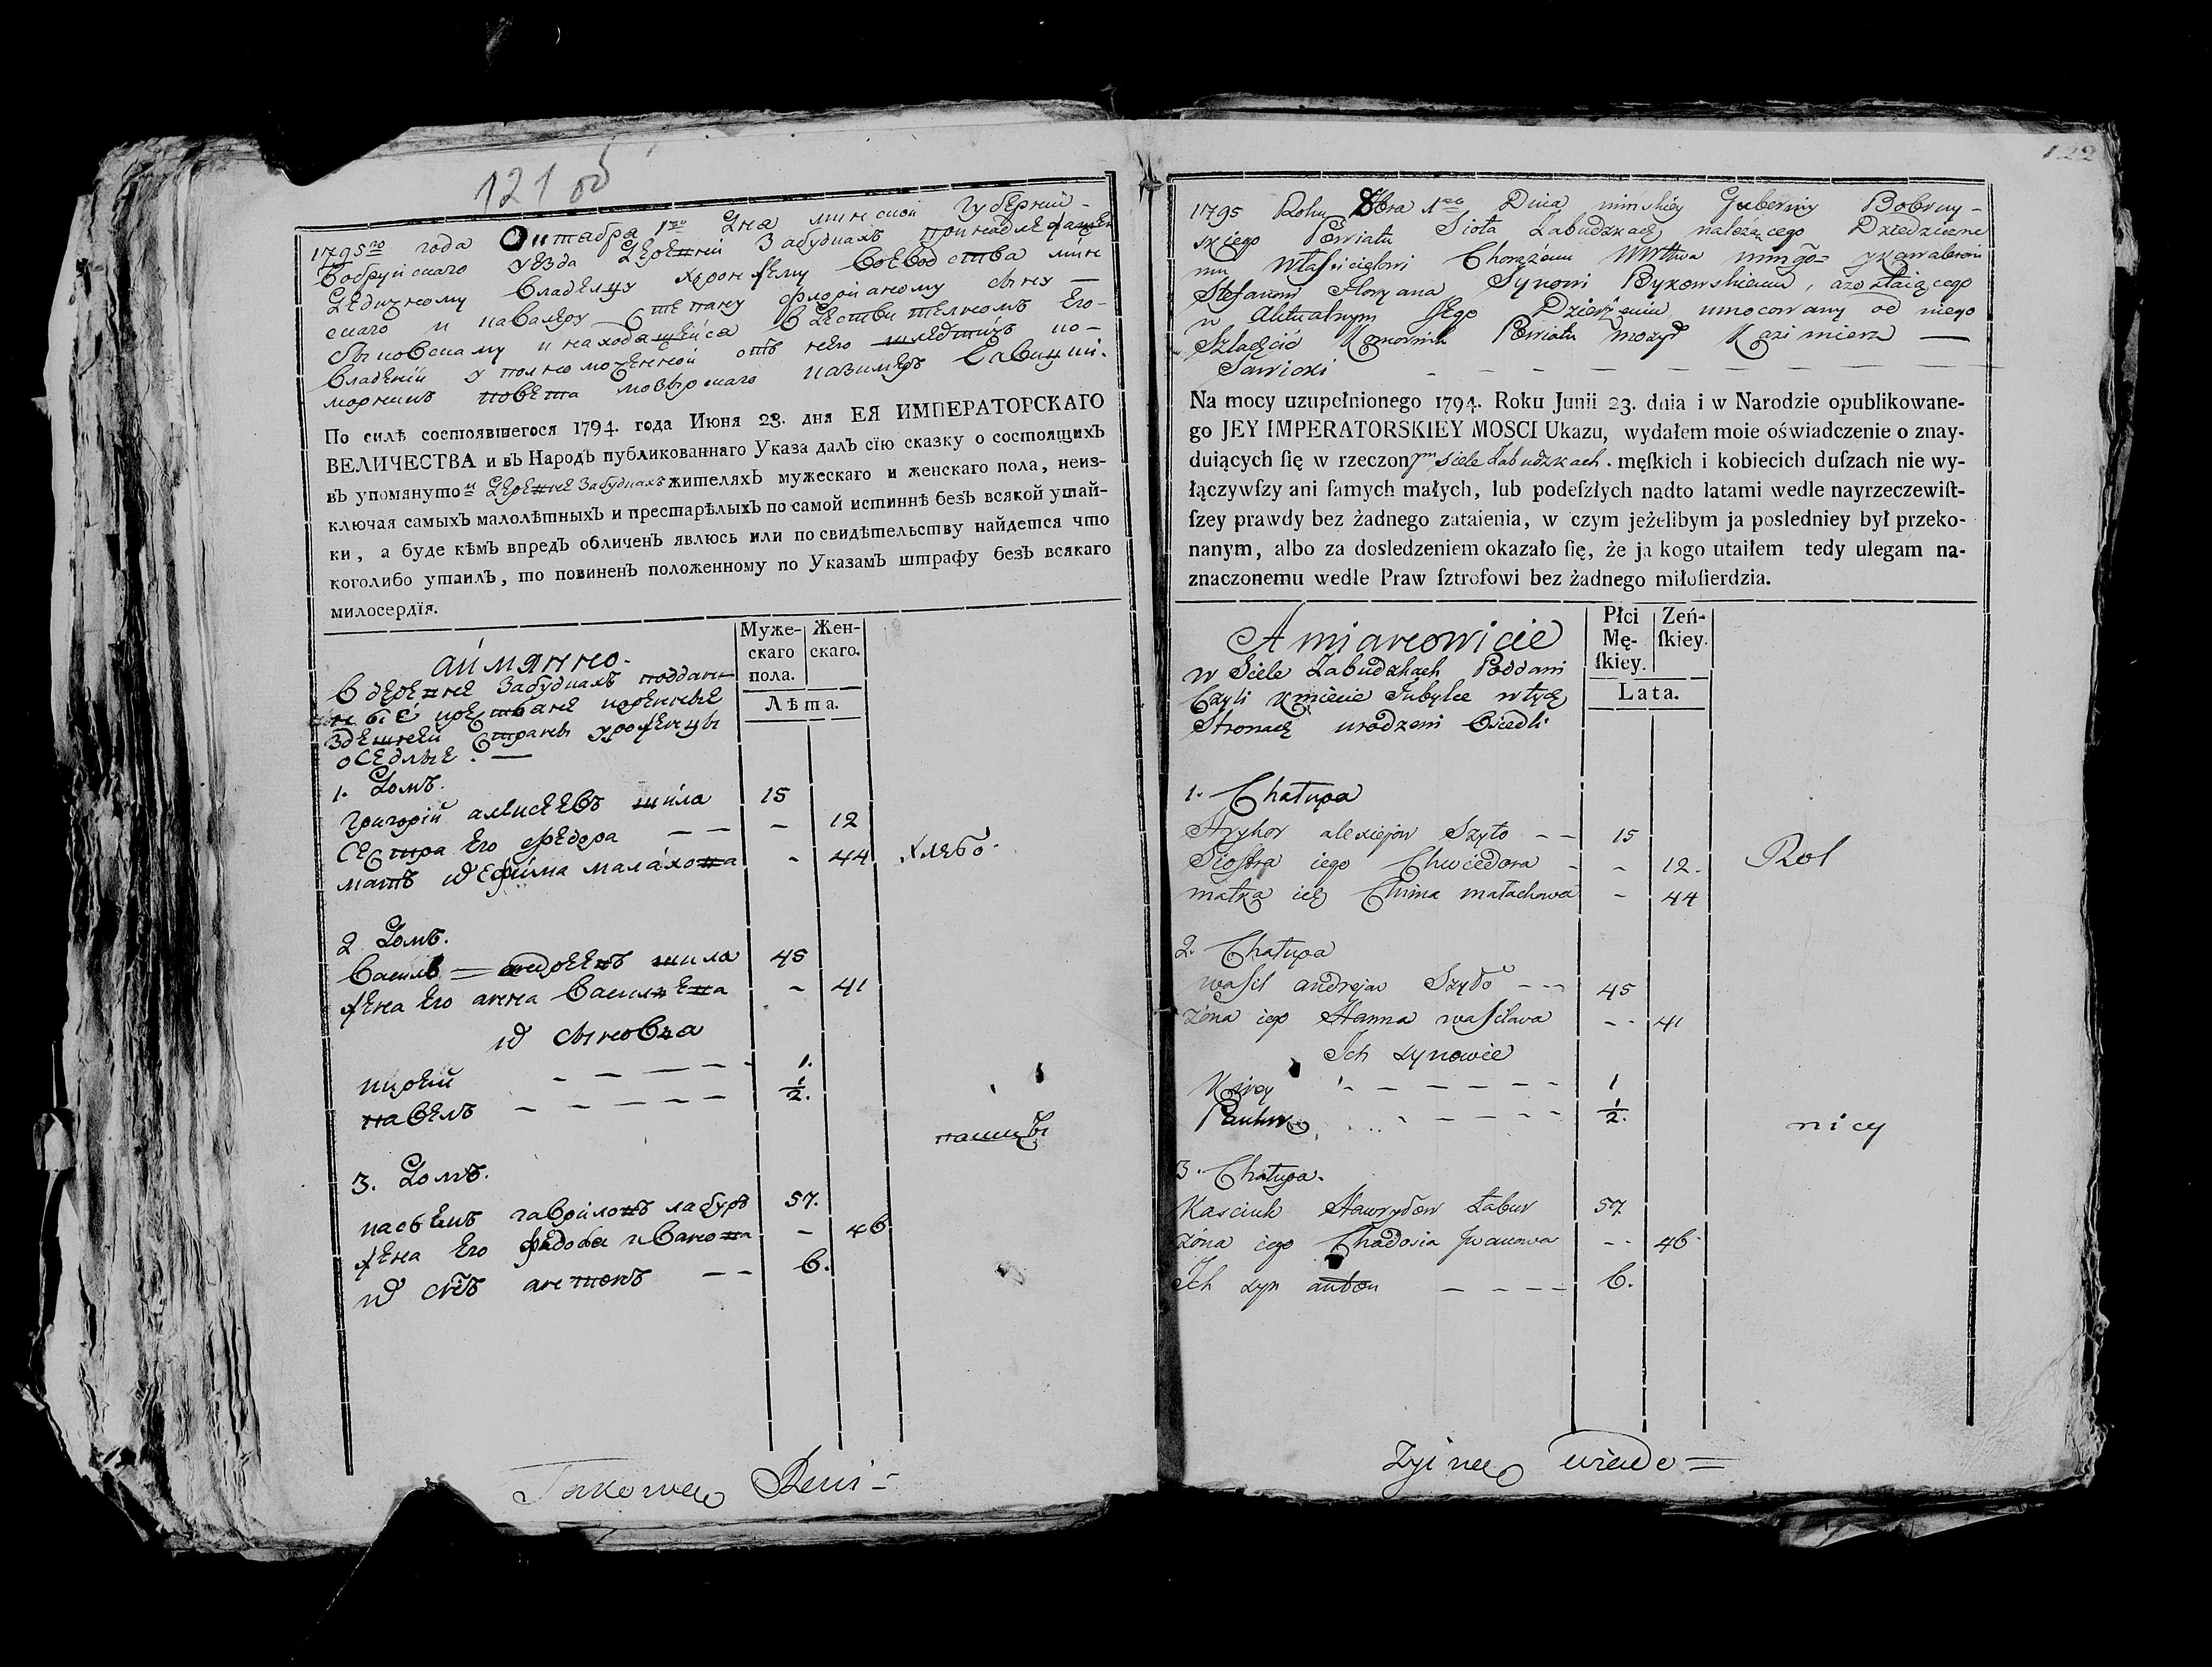 121 об
1795го года Октабра 1го Дня минской губерній-
Бобруйскаго уезда Деревни Забудках принадлежащей
Дедичному владелцу хоронжему воеводства минс
скаго и кавалеру Степану Флоріаному сыну —
Быковскому и находащейса в действителном его-
владеній уполномоченной отъ него шледтичъ ко-
морникъ повета мозырскаго казимеръ Савицкій.
По силѣ состоявшегося 1794. года Июня 23. дня ЕЯ ИМПЕРАТОРСКАГО
ВЕЛИЧЕСТВА и въ Народъ публикованнаго Указа далъ сїю сказку о состоящихъ
въ упомянутой Деревне Забудкахъ жителяхъ мужескаго и женскаго пола, неиз-
ключая самыхъ малолѣтныхъ и престарѣлыхъ по самой истиннѣ безъ всякой утай-
ки, а буде кѣмъ впредъ обличенъ явлюсь или по свидѣтельству найдется что
коголибо утаилъ, то повиненъ положенному по Указамъ штрафу безъ всякаго
милосердїя.
Муже- Жен-
скаго скаго.
пола.
Лѣта.
аймянно.
в деревне Забудках поддан-
ные крестьане коренные
здешней стараны уроженцы
оседлые. —
1. Домъ.
Григорій алексеевъ шила 15
сестра его Федора — — - 12
мать их Ефима малахова - 44
хлебо-
2 Домъ.
Василь = андреевъ шила 45
жена его анна Василева - 41
их сыновья
кирей - - - - - - 1.
павелъ - - - - - - 1/2.
пашцы
3. Домъ.
касьянъ гавриловъ лабуръ 57.
жена его Федося иванова - 46
их снъ антонъ - - 6.
Takowey Rewi=
122
1795 Roku 8bra 1go Dnia minskiey Guberniy Bobruy-
skiego Powiatu Sioła Zabudzkach należącego Dziedziczne
mu Właścicielowi Chorążemu Wwttwa mingo= y kawalerowi
Stefanowi Floryana Synowi Bykowskiemu, a zostaiącego
w aktualnym Jego Dzierżeniu umocowany od niego
Szlachcic Komornik Powiatu mozyr Kazimierz —
Sawicki - - - - - - - -
Na mocy uzupełnionego 1794. Roku Junii 23. dnia i w Narodzie opublikowane-
go JEY IMPERATORSKIEY MOSCI Ukazu, wydałem moie oświadczenie o znay-
duiących ſię w rzeczonym Siele Zabudzkach. męſkich i kobiecich duſzach nie wy-
łączywſzy ani ſamych małych, lub podeſzłych nadto latami wedle nayrzeczewiſt-
ſzey prawdy bez żadnego zataienia, w czym jeżelibym ja posledniey był przeko-
nanym, albo za dosledzeniem okazało ſię, że ja kogo utaiłem tedy ulegam na-
znaczonemu wedle Praw ſztrofowi bez żadnego miłoſierdzia.
Płci Zeń-
Mę- ſkiey.
ſkiey.
Lata.
A mianowicie
w Siele Zabudzkach Poddani
Czyli Kmiecie Tubylce w tych
Stronach urodzeni Osiedli
1. Chałupa
Hryhor alexiejow Szyło - - 15
Siostra iego Chwiedora - - 12.
matka ich Chima małachowa - 44
Rol
2. Chałupa
wasil andrejew Szydo - - - 45
żona iego Hanna wasilawa - - 41
Ich synowie
Kirey - - - - - - 1
Pauluk - - - - 1/2.
nicy
3. Chałupa.
Kasciuk Hawryłow Łabur 57
żona iego Chadosia Jwanowa - - 46
Ich syn anton - - - - 6.
zyi nee wiado=